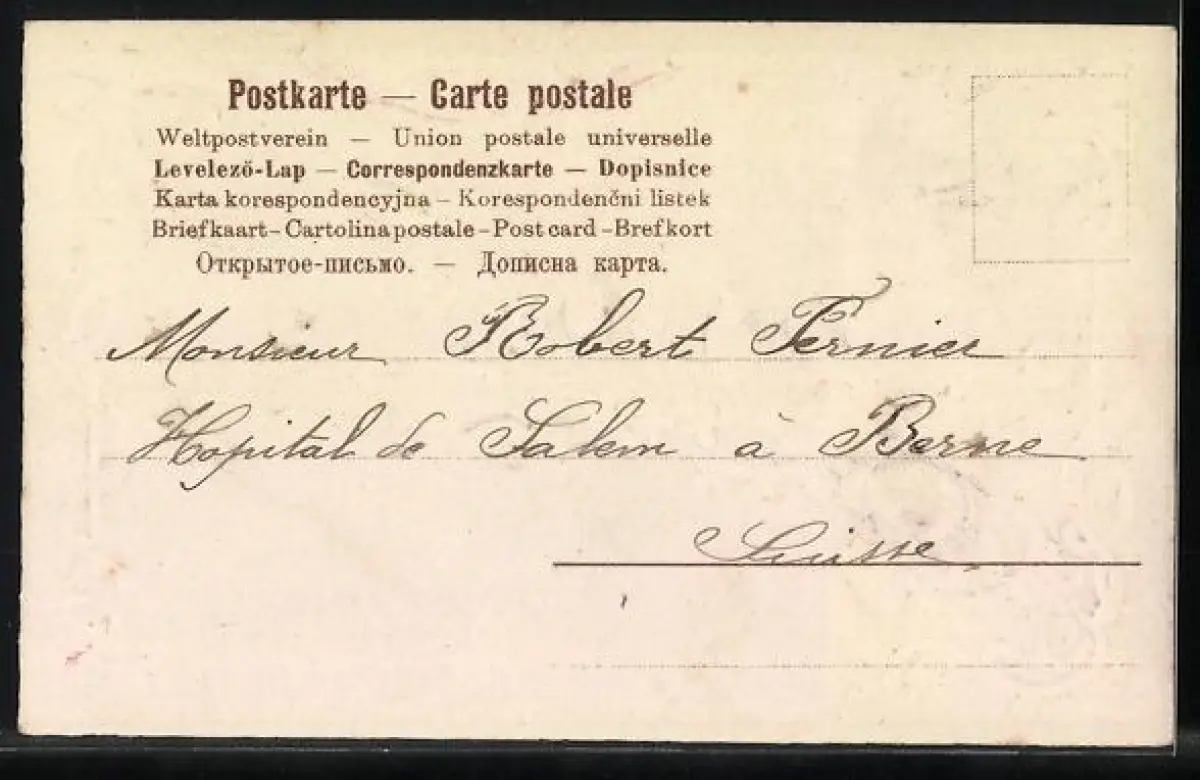 Postkarte — Carte postale
Weltpostverein — Union postale universelle
Levelező-Lap — Correspondenzkarte — Dopisnice
Karta korespondencyjna – Korespondenčni listek
Briefkaart – Cartolina postale – Post card – Brefkort
Открытое-письмо. — Дописна карта.
Monsieur Robert Fernier
Hopital de Salem à Berne
Suisse